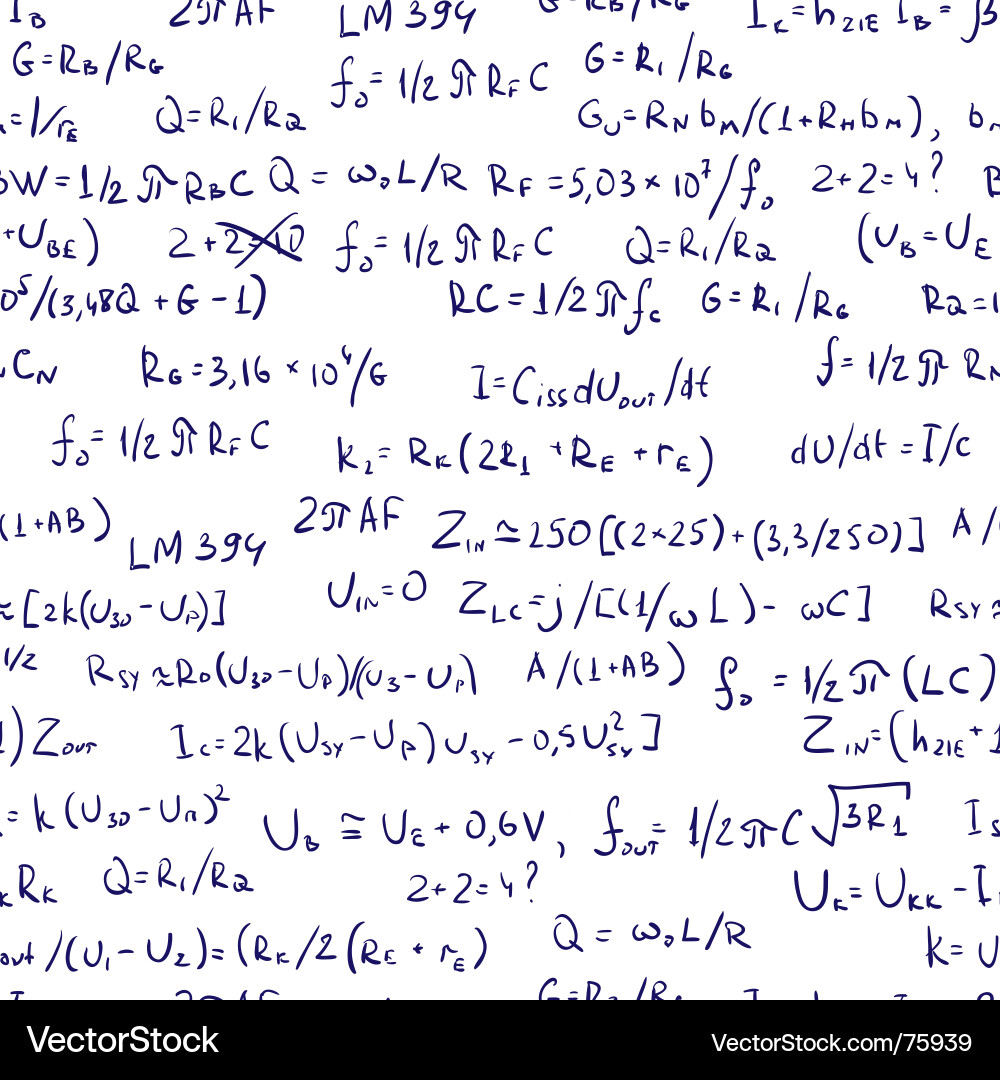 I_B 2πAF LM 394 G=R_B/R_G I_K=h_21E I_B=β
G=R_B/R_G f_0=1/2πR_F C G=R_1/R_G
=1/r_E Q=R_1/R_Q G_U=R_N b_M/(1+R_H b_M), b
BW=1/2πR_B C Q=ω_0L/R R_F=5,03×10^7/f_0 2+2=4?
+U_BE) 2+2=10 f_0=1/2πR_F C Q=R_1/R_Q (U_B=U_E
0^5/(3,48Q+G-1) RC=1/2πf_c G=R_1/R_G R_Q=1
C_N R_G=3,16×10^4/G I=C_iss dU_out/dt f=1/2πR_N
f_0=1/2πR_F C k_2=R_K(2R_1+R_E+r_E) dU/dt=I/c
(1+AB) LM 394 2πAF Z_IN≃250[(2×25)+(3,3/250)] A/
≈[2k(U_30-U_P)] U_IN=0 Z_LC=j/[(1/ωL)-ωC] R_SY≈
1/2 R_SY≈R_0(U_30-U_P)/(U_3-U_P) A/(1+AB) f_0=1/2π(LC)
) Z_OUT I_C=2k(U_SY-U_P)U_SY-0,5U_SY^2] Z_IN=(h_21E+1
=k(U_30-U_п)^2 U_B≅U_E+0,6V, f_OUT=1/2πC√3R_1 I_S
K R_K Q=R_1/R_Q 2+2=4? U_K=U_KK-I
out/(U_1-U_2)=(R_K/2(R_E+r_E) Q=ω_0L/R k=U
G=R_B/R_G
VectorStock VectorStock.com/75939